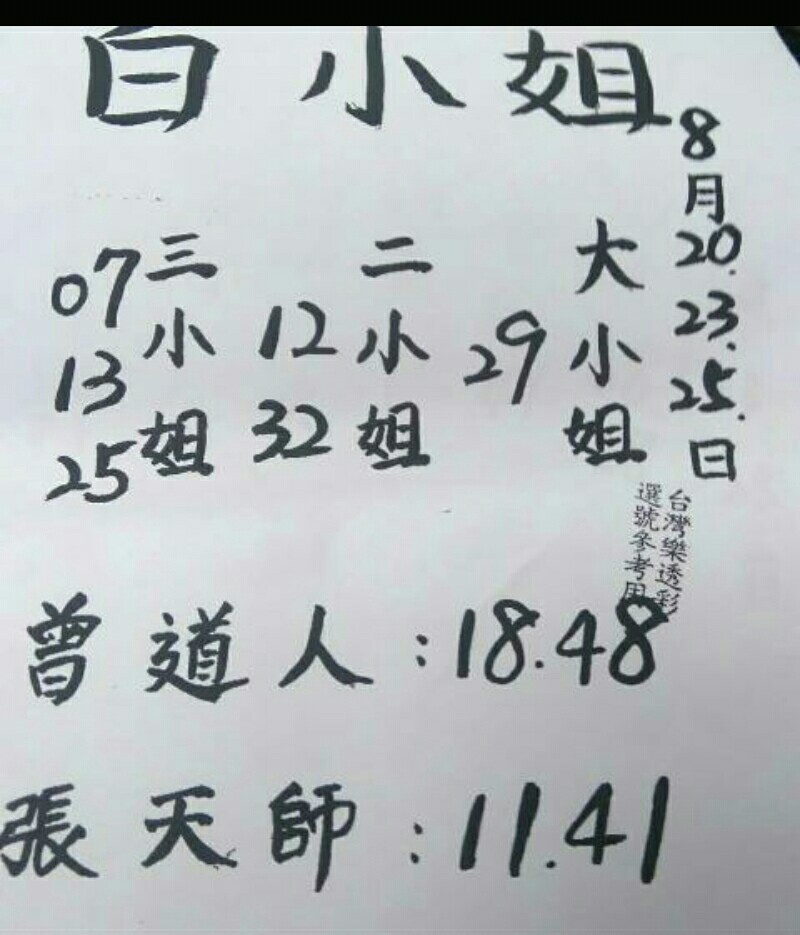 白小姐
8月20.23.25.日
大小姐
29
二小姐
12
32
三小姐
07
13
25
台灣樂透彩
選號參考用
曾道人:18.48
張天師:11.41